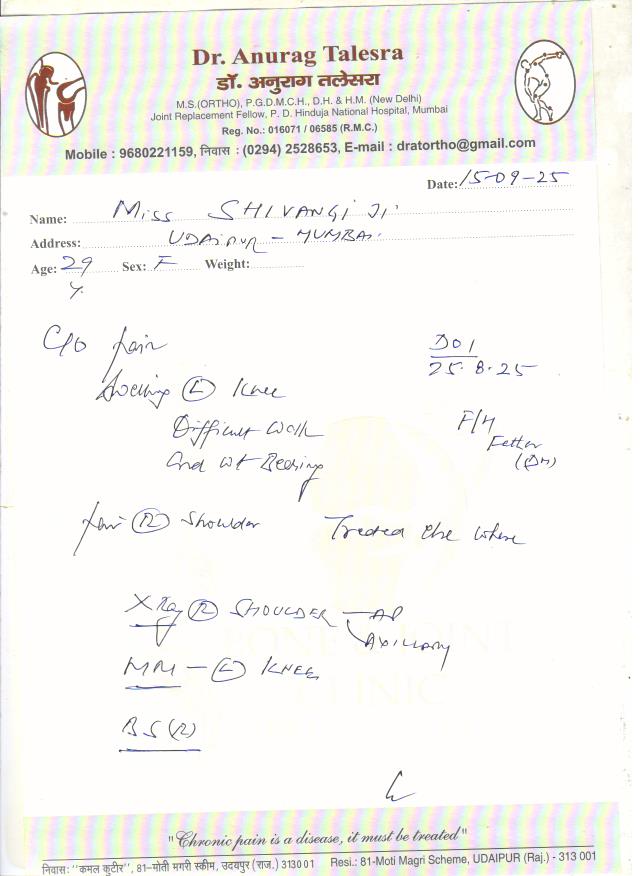 Dr. Anurag Talesra
डॉ. अनुराग तलेसरा
M.S.(ORTHO), P.G.D.M.C.H., D.H. & H.M. (New Delhi)
Joint Replacement Fellow, P. D. Hinduja National Hospital, Mumbai
Reg. No.: 016071 / 06585 (R.M.C.)
Mobile : 9680221159, निवास : (0294) 2528653, E-mail : dratortho@gmail.com
Date: 15-09-25
Name: Miss SHIVANGI Ji
Address: UDAIPUR - MUMBAI
Age: 29 Y. Sex: F Weight:
C/O pain
DOI
25.8.25
Swelling (L) Knee
Difficult Walk
F/H
Father
(DM)
And wt Bearing
pain (R) Shoulder Treated else where
X Ray (R) SHOULDER - AP
AXILLARY
- (L) KNEE
BS (R)
CLINIC
"Chronic pain is a disease, it must be treated"
निवास: "कमल कुटीर", 81-मोती मगरी स्कीम, उदयपुर (राज.) 313001 Resi.: 81-Moti Magri Scheme, UDAIPUR (Raj.) - 313 001